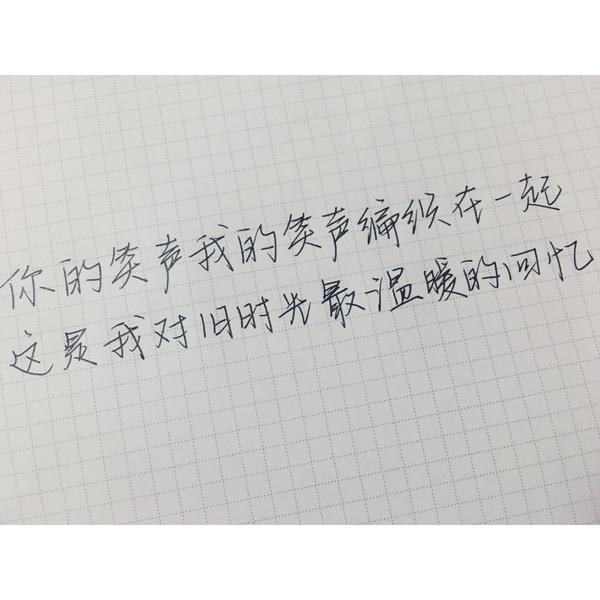 你的笑声我的笑声编织在一起
这是我对旧时光最温暖的回忆